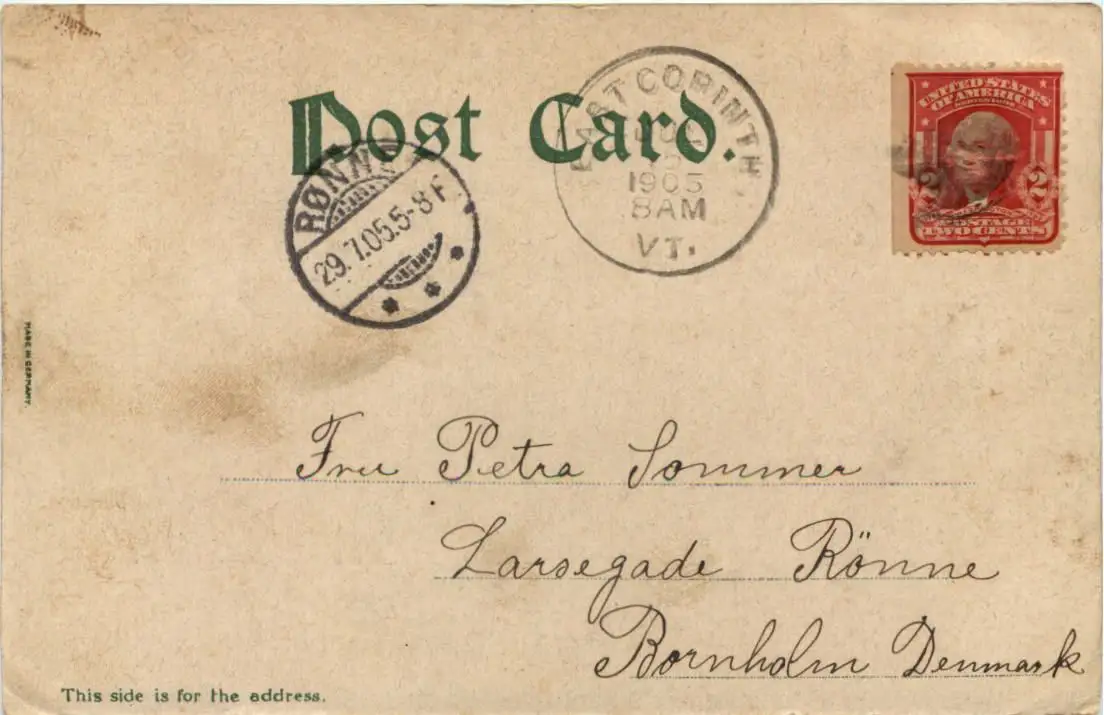 Post Card.
EAST CORINTH.
JUL
1905
8AM
VT.
UNITED STATES
OF AMERICA
2 2
POSTAGE
TWO CENTS
RØNNE
29.7.05.5-8 F
MADE IN GERMANY.
Fru Petra Sommer
Larsegade Rönne
Bornholm Denmark
This side is for the address.